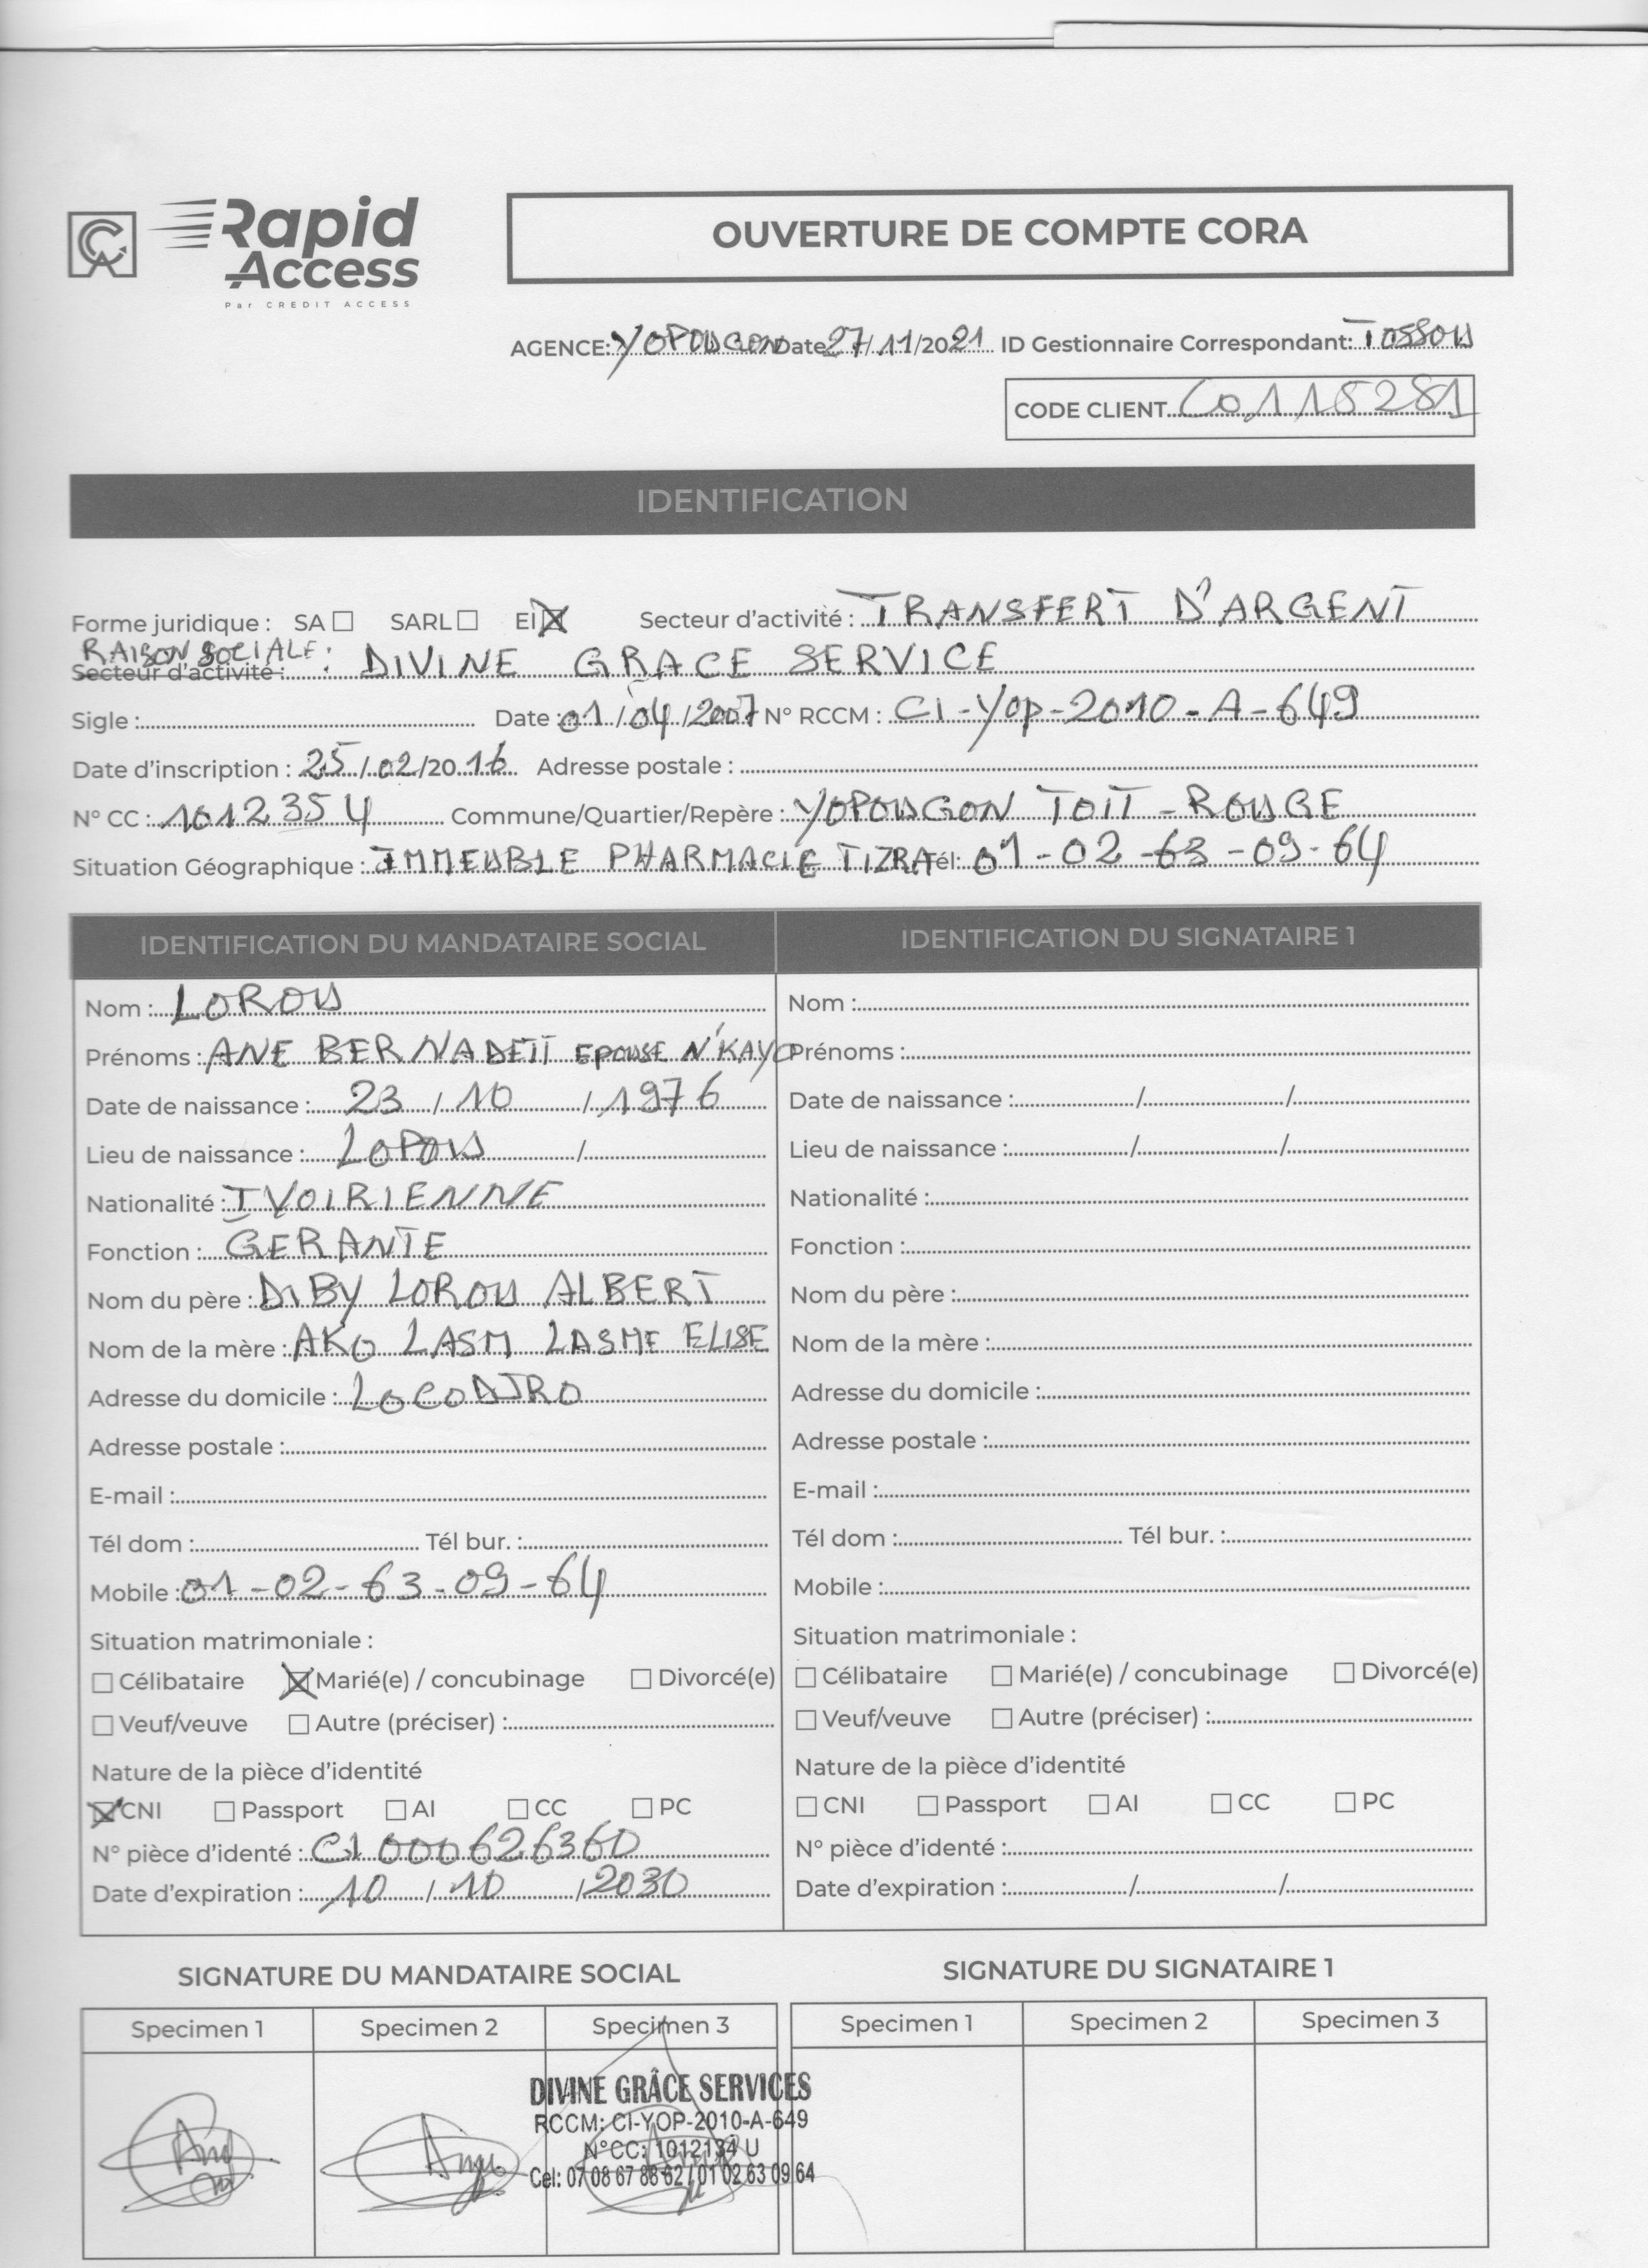 Rapid Access
Par CREDIT ACCESS
OUVERTURE DE COMPTE CORA
AGENCE: YOPOUGON Date 27/11/2021 ID Gestionnaire Correspondant: TOSSOU
CODE CLIENT C0115281
IDENTIFICATION
Forme juridique : SA ☐ SARL ☐ EI ☒ Secteur d'activité : TRANSFERT D'ARGENT
RAISON SOCIALE :
Secteur d'activité : DIVINE GRACE SERVICE
Sigle : Date : 01/04/2007 N° RCCM : CI-Yop-2010-A-649
Date d'inscription : 25/02/2016 Adresse postale :
N° CC : 1012354 Commune/Quartier/Repère : YOPOUGON TOIT-ROUGE
Situation Géographique : IMMEUBLE PHARMACIE TIZRA Tél: 01-02-63-09-64
IDENTIFICATION DU MANDATAIRE SOCIAL
Nom : LOROU
Prénoms : ANE BERNADETT EPOUSE N'KAYO
Date de naissance : 23 / 10 / 1976
Lieu de naissance : LOPOU /
Nationalité : IVOIRIENNE
Fonction : GERANTE
Nom du père : DIBY LOROU ALBERT
Nom de la mère : AKO LASM LASME ELISE
Adresse du domicile : LOCODJRO
Adresse postale :
E-mail :
Tél dom : Tél bur. :
Mobile : 01-02-63-09-64
Situation matrimoniale :
☐ Célibataire ☒ Marié(e) / concubinage ☐ Divorcé(e)
☐ Veuf/veuve ☐ Autre (préciser) :
Nature de la pièce d'identité
☒ CNI ☐ Passport ☐ AI ☐ CC ☐ PC
N° pièce d'identé : CI 000626360
Date d'expiration : 10 / 10 / 2030
IDENTIFICATION DU SIGNATAIRE 1
Nom :
Prénoms :
Date de naissance : / /
Lieu de naissance : / /
Nationalité :
Fonction :
Nom du père :
Nom de la mère :
Adresse du domicile :
Adresse postale :
E-mail :
Tél dom : Tél bur. :
Mobile :
Situation matrimoniale :
☐ Célibataire ☐ Marié(e) / concubinage ☐ Divorcé(e)
☐ Veuf/veuve ☐ Autre (préciser) :
Nature de la pièce d'identité
☐ CNI ☐ Passport ☐ AI ☐ CC ☐ PC
N° pièce d'identé :
Date d'expiration : / /
SIGNATURE DU MANDATAIRE SOCIAL
Specimen 1 Specimen 2 Specimen 3
DIVINE GRÂCE SERVICES
RCCM: CI-YOP-2010-A-649
N°CC: 1012134 U
Cel: 07 08 67 88 62 / 01 02 63 09 64
SIGNATURE DU SIGNATAIRE 1
Specimen 1 Specimen 2 Specimen 3